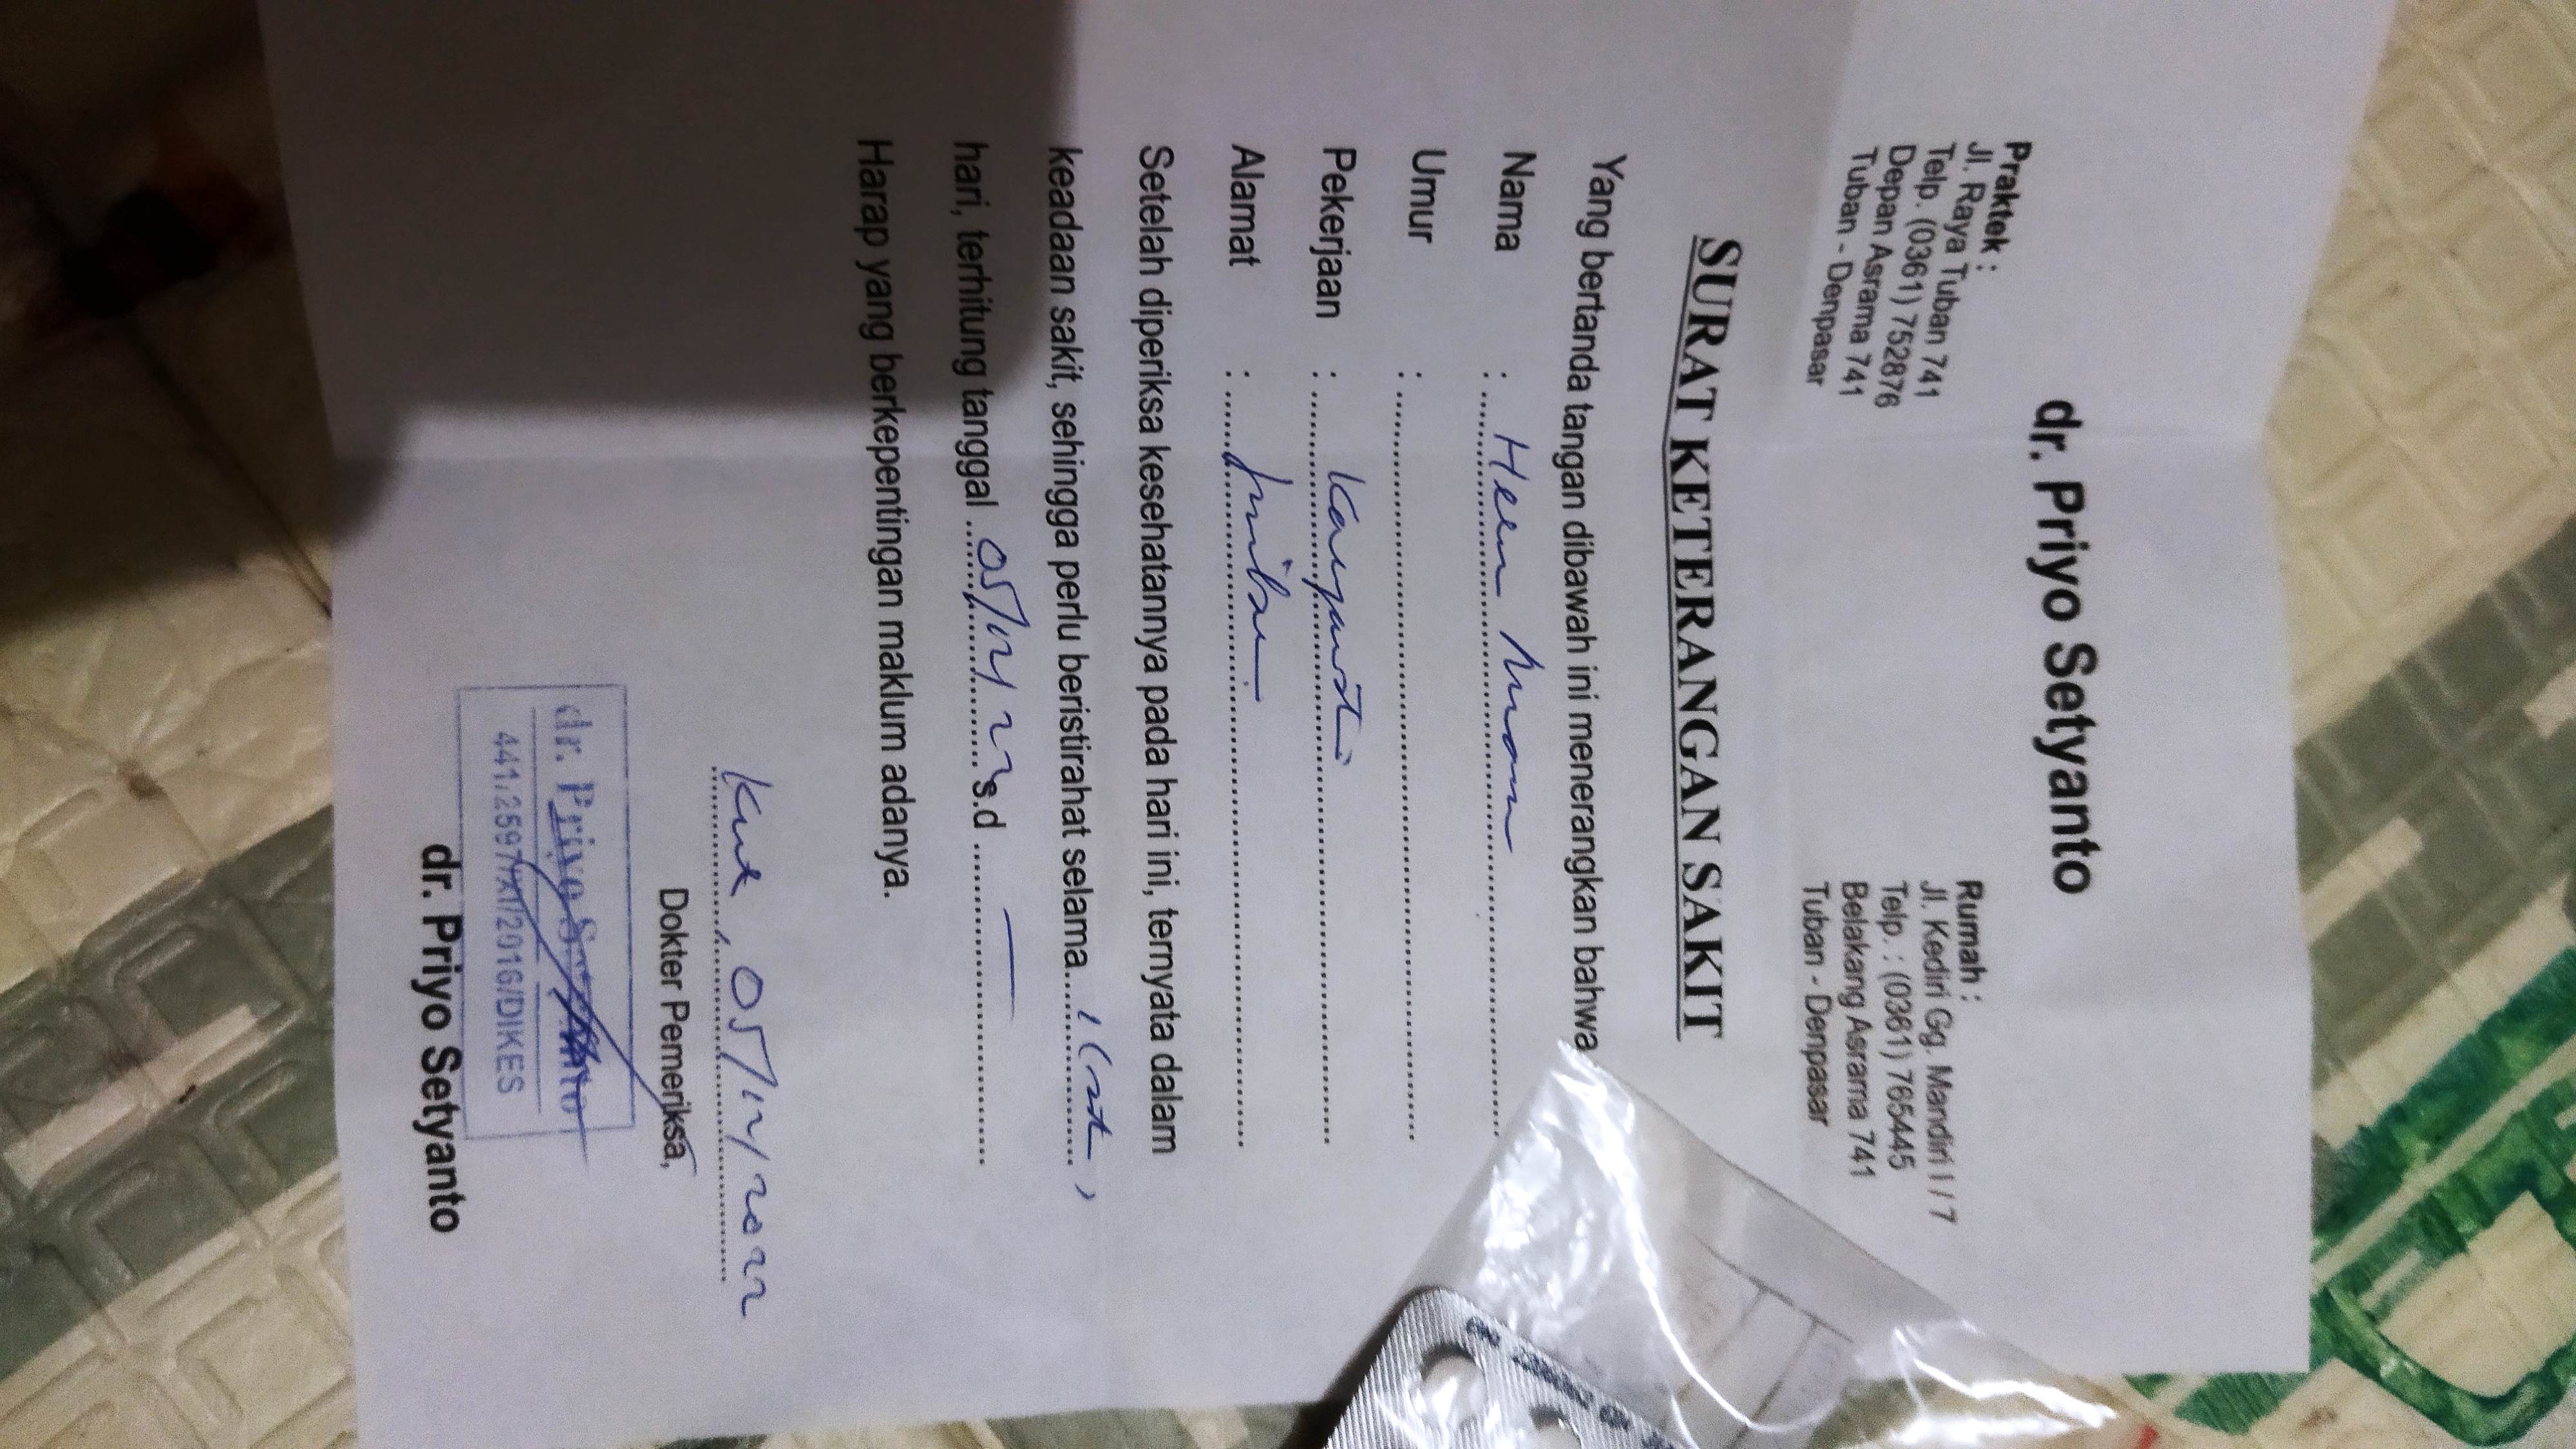 dr. Priyo Setyanto
Praktek :
Jl. Raya Tuban 741
Telp. (0361) 752876
Depan Asrama 741
Tuban - Denpasar
Rumah :
Jl. Kediri Gg. Mandiri I / 7
Telp. : (0361) 765445
Belakang Asrama 741
Tuban - Denpasar
SURAT KETERANGAN SAKIT
Yang bertanda tangan dibawah ini menerangkan bahwa
Nama :
Umur :
Pekerjaan :
Alamat :
Setelah diperiksa kesehatannya pada hari ini, ternyata dalam
keadaan sakit, sehingga perlu beristirahat selama 1
hari, terhitung tanggal 05/12/22 s.d —
Harap yang berkepentingan maklum adanya.
05/12/2022
Dokter Pemeriksa,
dr. Priyo Setyanto
441.2597/XI/2016/DIKES
dr. Priyo Setyanto